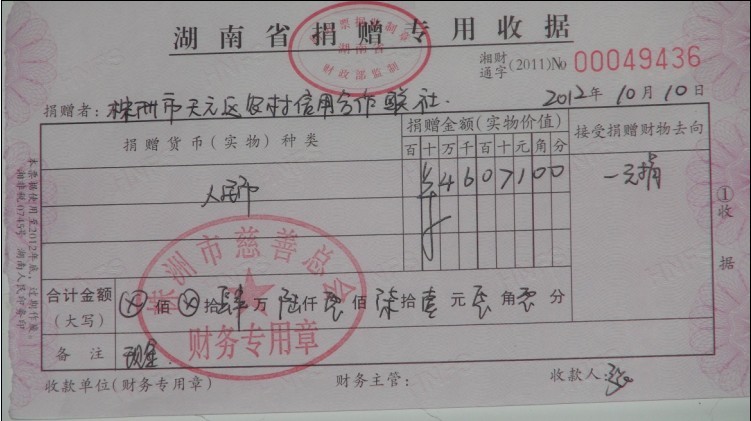 湖南省捐赠专用收据
湖南省
财政部监制
湘财通字(2011)№ 00049436
捐赠者：株洲市天元区农村信用合作联社.
2012年10月10日
捐赠货币(实物)种类
捐赠金额(实物价值)
接受捐赠财物去向
百十万千百十元角分
人民币
¥4607100
一元捐
①收据
合计金额(大写)
⊗佰⊗拾肆万陆仟零佰柒拾壹元零角零分
备注
现金
株洲市慈善总会
财务专用章
收款单位(财务专用章)
财务主管：
收款人：